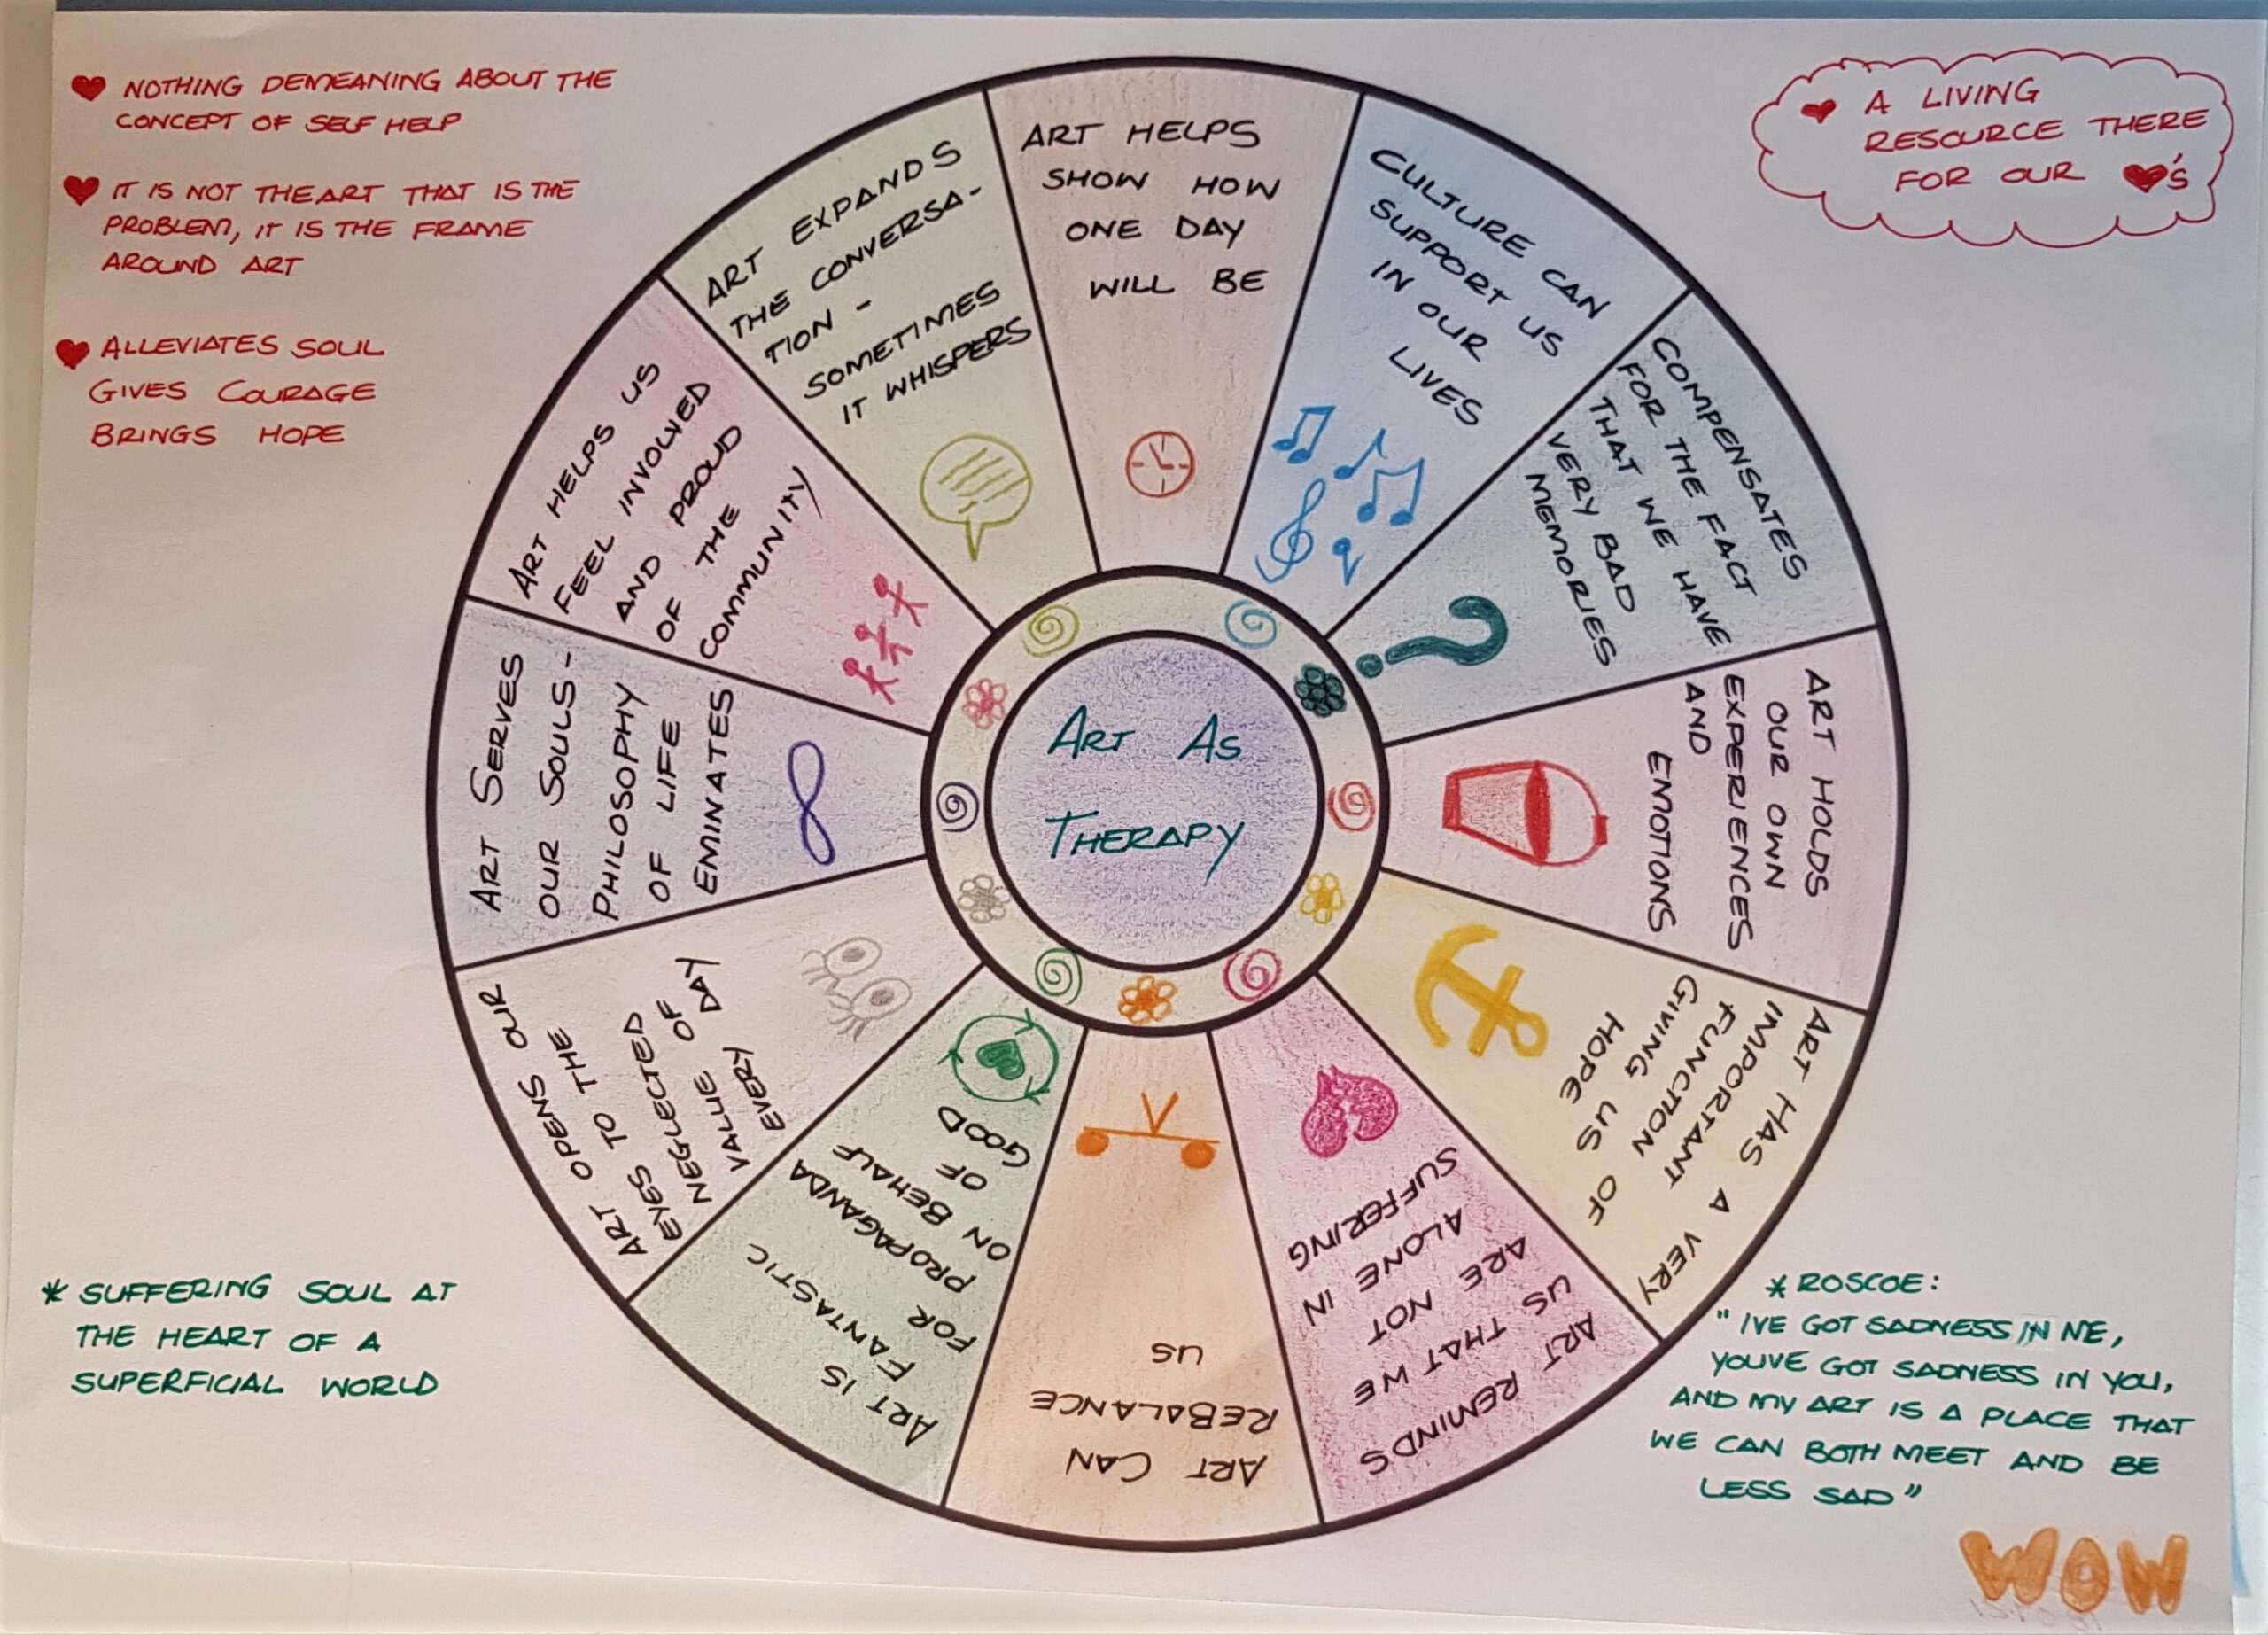 ♥ NOTHING DEMEANING ABOUT THE
CONCEPT OF SELF HELP
♥ IT IS NOT THE ART THAT IS THE
PROBLEM, IT IS THE FRAME
AROUND ART
♥ ALLEVIATES SOUL
GIVES COURAGE
BRINGS HOPE
♥ A LIVING
RESOURCE THERE
FOR OUR ♥'S
ART AS
THERAPY
ART HELPS
SHOW HOW
ONE DAY
WILL BE
CULTURE CAN
SUPPORT US
IN OUR
LIVES
COMPENSATES
FOR THE FACT
THAT WE HAVE
VERY BAD
MEMORIES
ART HOLDS
OUR OWN
EXPERIENCES
AND
EMOTIONS
ART HAS A VERY
IMPORTANT
FUNCTION OF
GIVING US
HOPE
ART REMINDS
US THAT WE
ARE NOT
ALONE IN
SUFFERING
ART CAN
REBALANCE
US
ART IS
FANTASTIC
FOR
PROPAGANDA
ON BEHALF
OF
GOOD
ART OPENS OUR
EYES TO THE
NEGLECTED
VALUE OF
EVERY DAY
ART SERVES
OUR SOULS-
PHILOSOPHY
OF LIFE
EMINATES
ART HELPS US
FEEL INVOLVED
AND PROUD
OF THE
COMMUNITY
ART EXPANDS
THE CONVERSA-
TION -
SOMETIMES
IT WHISPERS
* SUFFERING SOUL AT
THE HEART OF A
SUPERFICIAL WORLD
* ROSCOE:
"IVE GOT SADNESS IN ME,
YOUVE GOT SADNESS IN YOU,
AND MY ART IS A PLACE THAT
WE CAN BOTH MEET AND BE
LESS SAD"
WOW